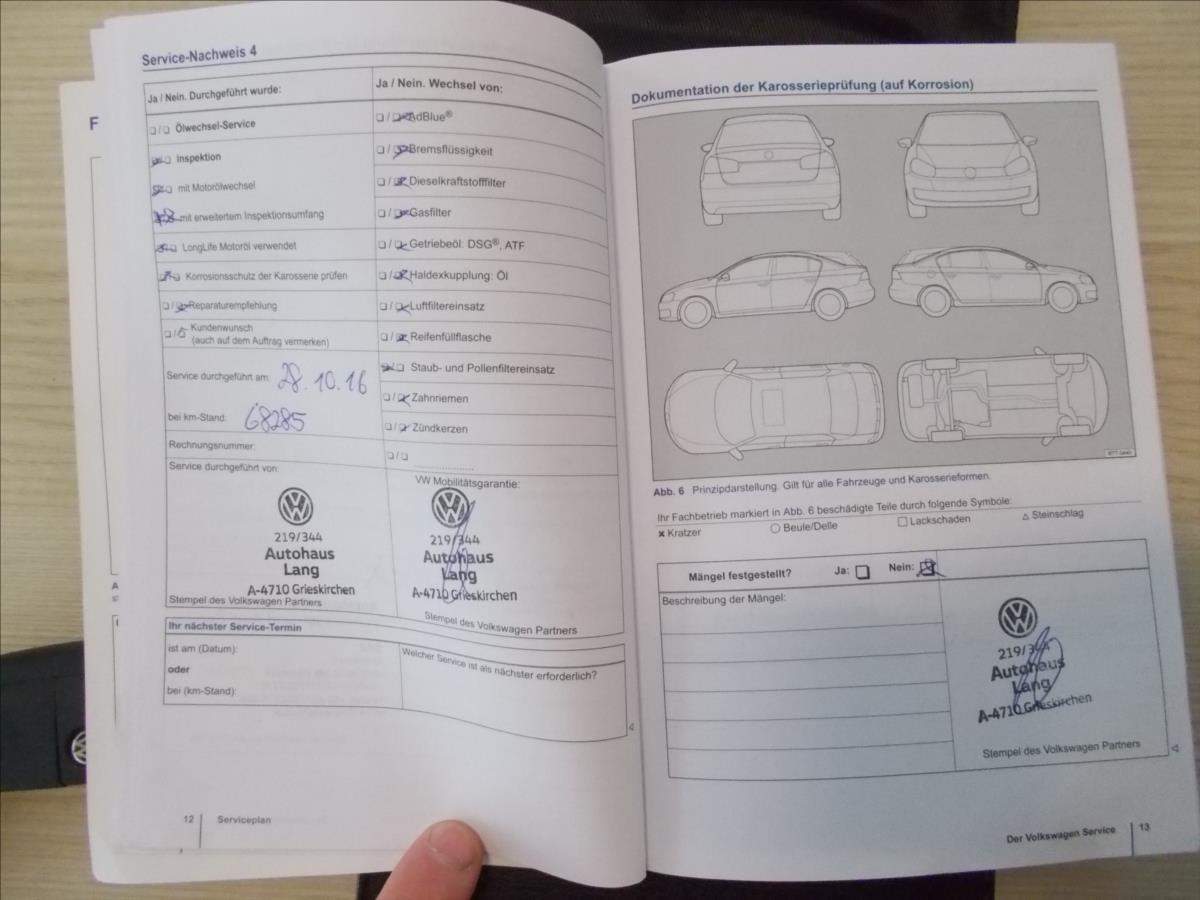 Service-Nachweis 4
Ja / Nein. Durchgeführt wurde:
Ölwechsel-Service
Inspektion
mit Motorölwechsel
mit erweitertem Inspektionsumfang
LongLife Motoröl verwendet
Korrosionsschutz der Karosserie prüfen
Reparaturempfehlung
Kundenwunsch
(auch auf dem Auftrag vermerken)
Service durchgeführt am: 28.10.16
bei km-Stand: 68285
Rechnungsnummer:
Service durchgeführt von:
219/344
Autohaus
Lang
A-4710 Grieskirchen
Stempel des Volkswagen Partners
Ja / Nein. Wechsel von:
AdBlue®
Bremsflüssigkeit
Dieselkraftstofffilter
Gasfilter
Getriebeöl: DSG®, ATF
Haldexkupplung: Öl
Luftfiltereinsatz
Reifenfüllflasche
Staub- und Pollenfiltereinsatz
Zahnriemen
Zündkerzen
VW Mobilitätsgarantie:
219/344
Autohaus
Lang
A-4710 Grieskirchen
Stempel des Volkswagen Partners
Ihr nächster Service-Termin
ist am (Datum):
oder
bei (km-Stand):
Welcher Service ist als nächster erforderlich?
12 Serviceplan
Dokumentation der Karosserieprüfung (auf Korrosion)
Abb. 6 Prinzipdarstellung. Gilt für alle Fahrzeuge und Karosserieformen.
Ihr Fachbetrieb markiert in Abb. 6 beschädigte Teile durch folgende Symbole:
Kratzer Beule/Delle Lackschaden Steinschlag
Mängel festgestellt? Ja: Nein:
Beschreibung der Mängel:
219/344
Autohaus
Lang
A-4710 Grieskirchen
Stempel des Volkswagen Partners
Der Volkswagen Service 13